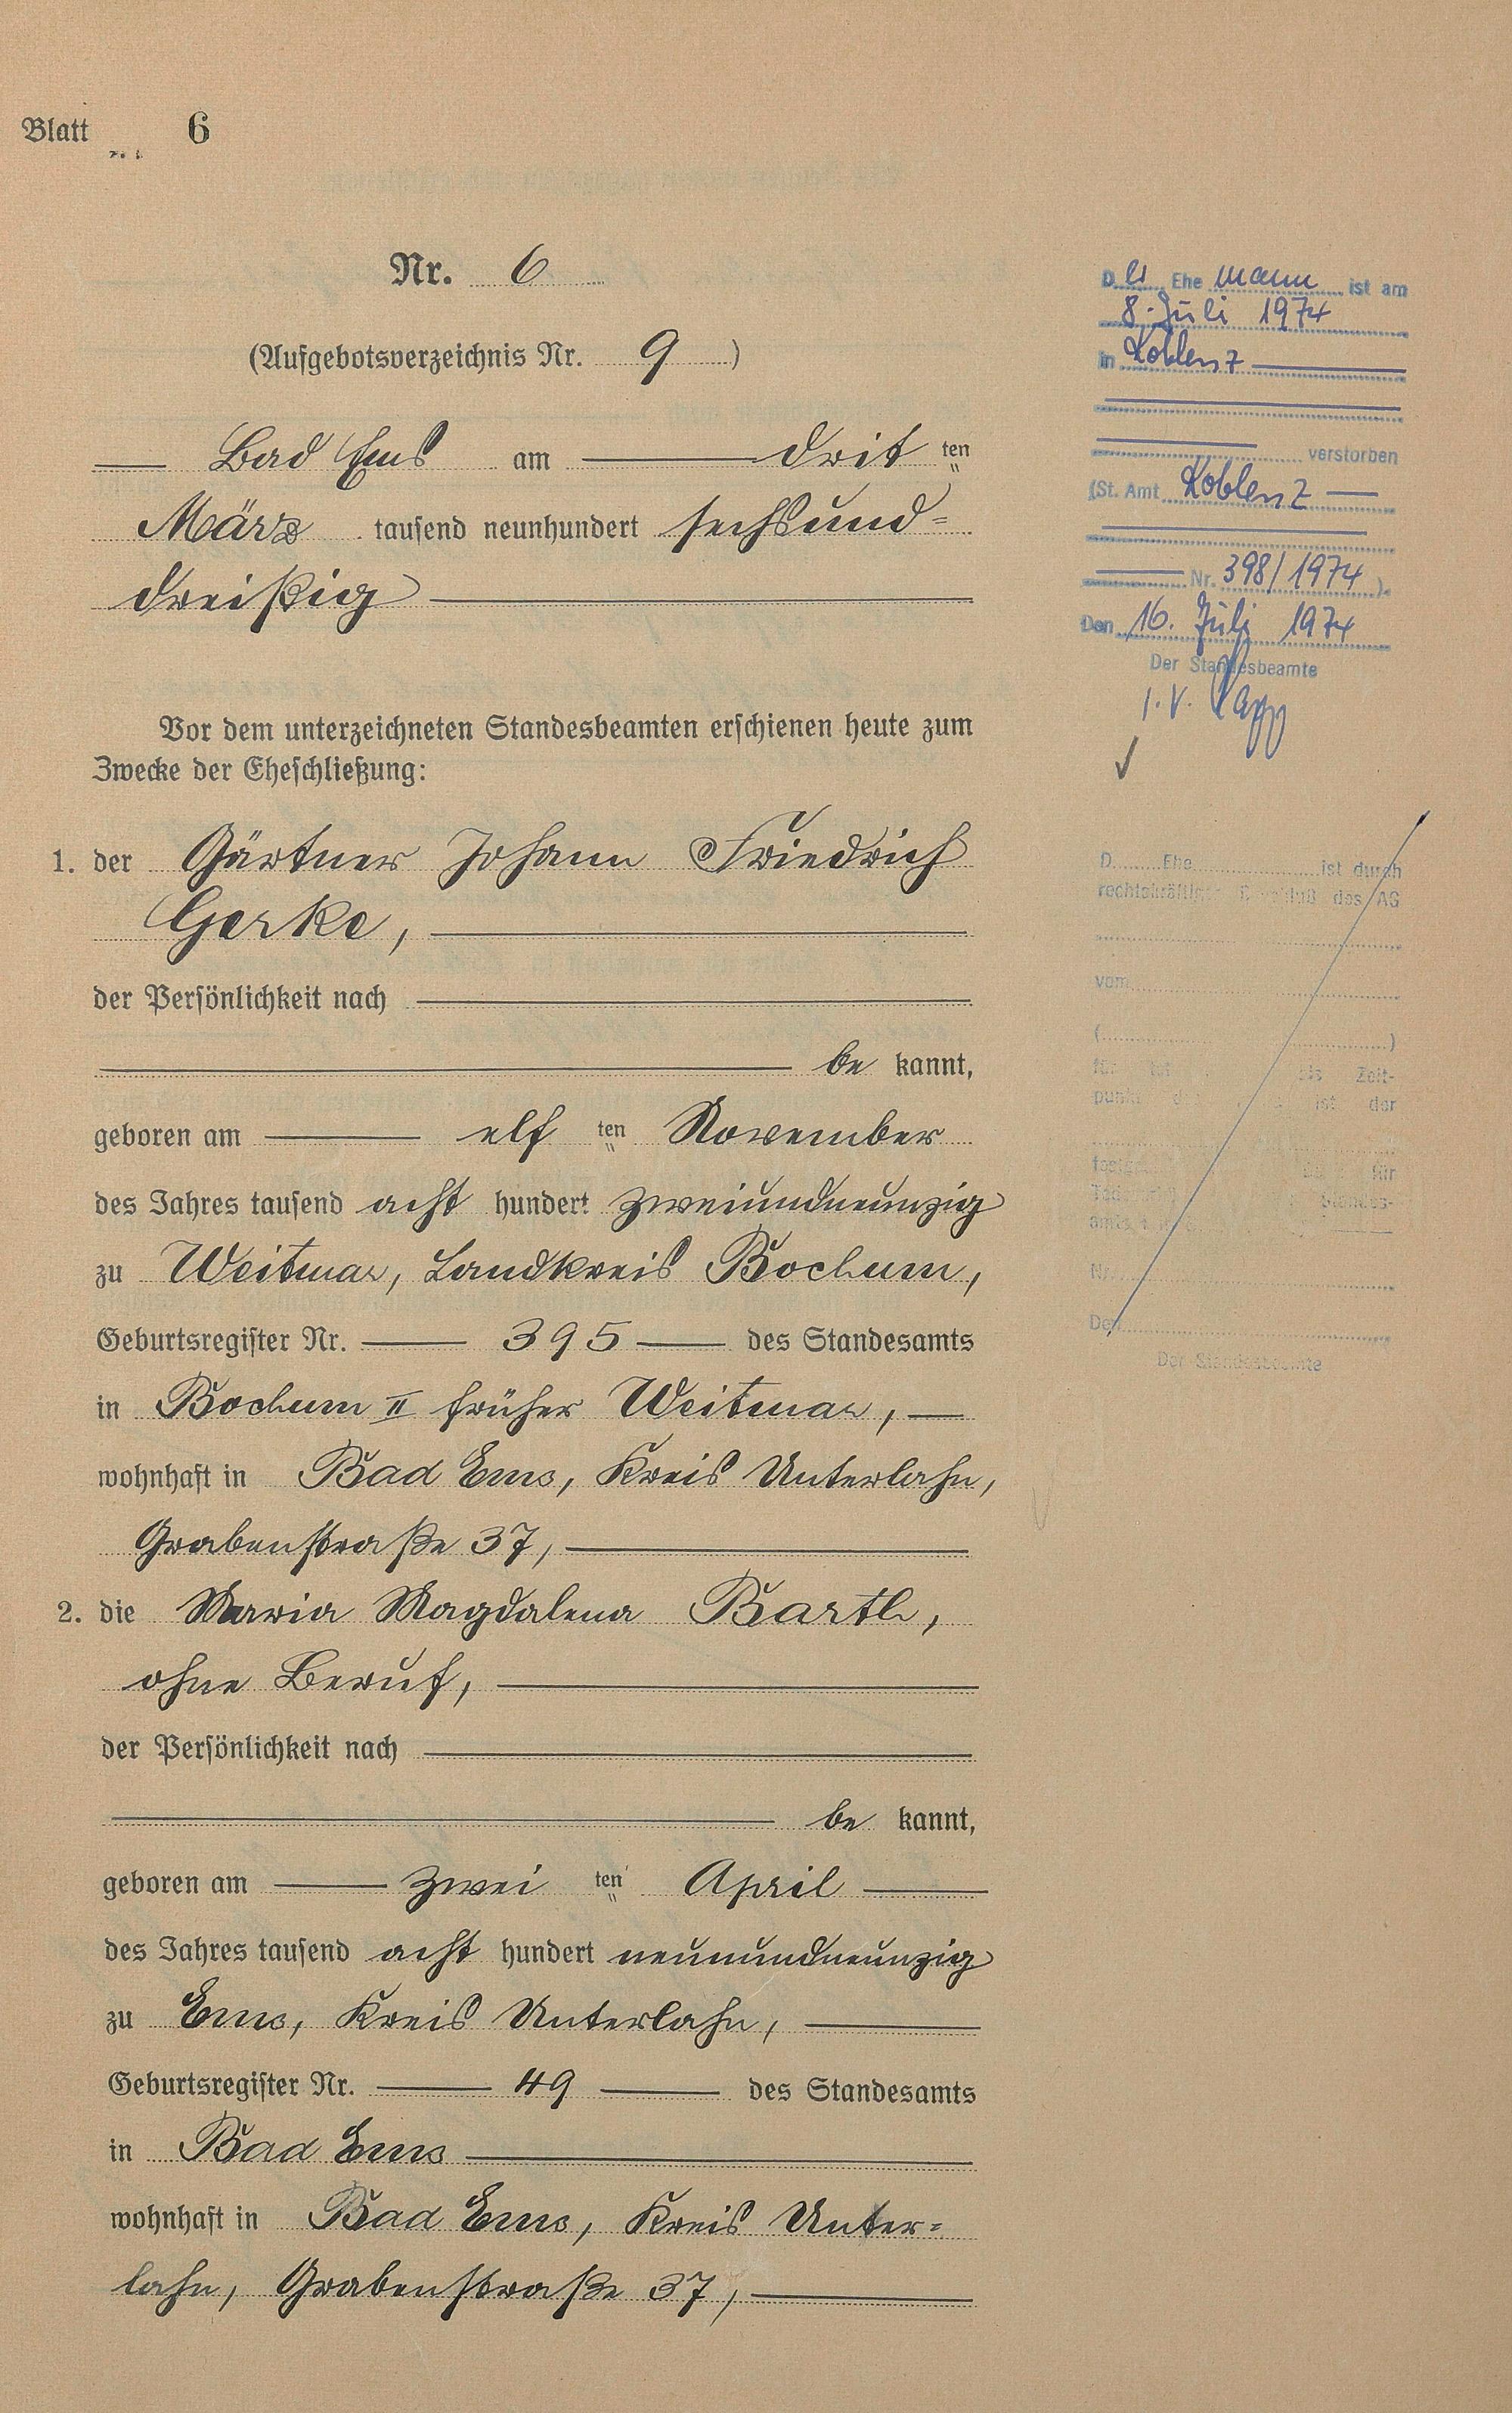 Blatt 6
Nr. 6
(Aufgebotsverzeichnis Nr. 9)
Bad Ems am dritten
März tausend neunhundert sechsund=
dreißig
Vor dem unterzeichneten Standesbeamten erschienen heute zum
Zwecke der Eheschließung:
1. der Gärtner Johann Friedrich
Gerke,
der Persönlichkeit nach
be kannt,
geboren am elf ten November
des Jahres tausend acht hundert zweiundneunzig
zu Weitmar, Landkreis Bochum,
Geburtsregister Nr. 395 des Standesamts
in Bochum II früher Weitmar,
wohnhaft in Bad Ems, Kreis Unterlahn,
Grabenstraße 37,
2. die Maria Magdalena Barth,
ohne Beruf,
der Persönlichkeit nach
be kannt,
geboren am zwei ten April
des Jahres tausend acht hundert neunundneunzig
zu Ems, Kreis Unterlahn,
Geburtsregister Nr. 49 des Standesamts
in Bad Ems
wohnhaft in Bad Ems, Kreis Unter=
lahn, Grabenstraße 37,
Der Ehe mann ist am
8. Juli 1974
in Koblenz
verstorben
(St. Amt Koblenz
Nr. 398/1974).
Den 16. Juli 1974
Der Standesbeamte
I. V.
D Ehe ist durch
des AG
vom
( )
für als Zeit-
ist der
für
Standes-
Nr.
Den
Der Standesbeamte